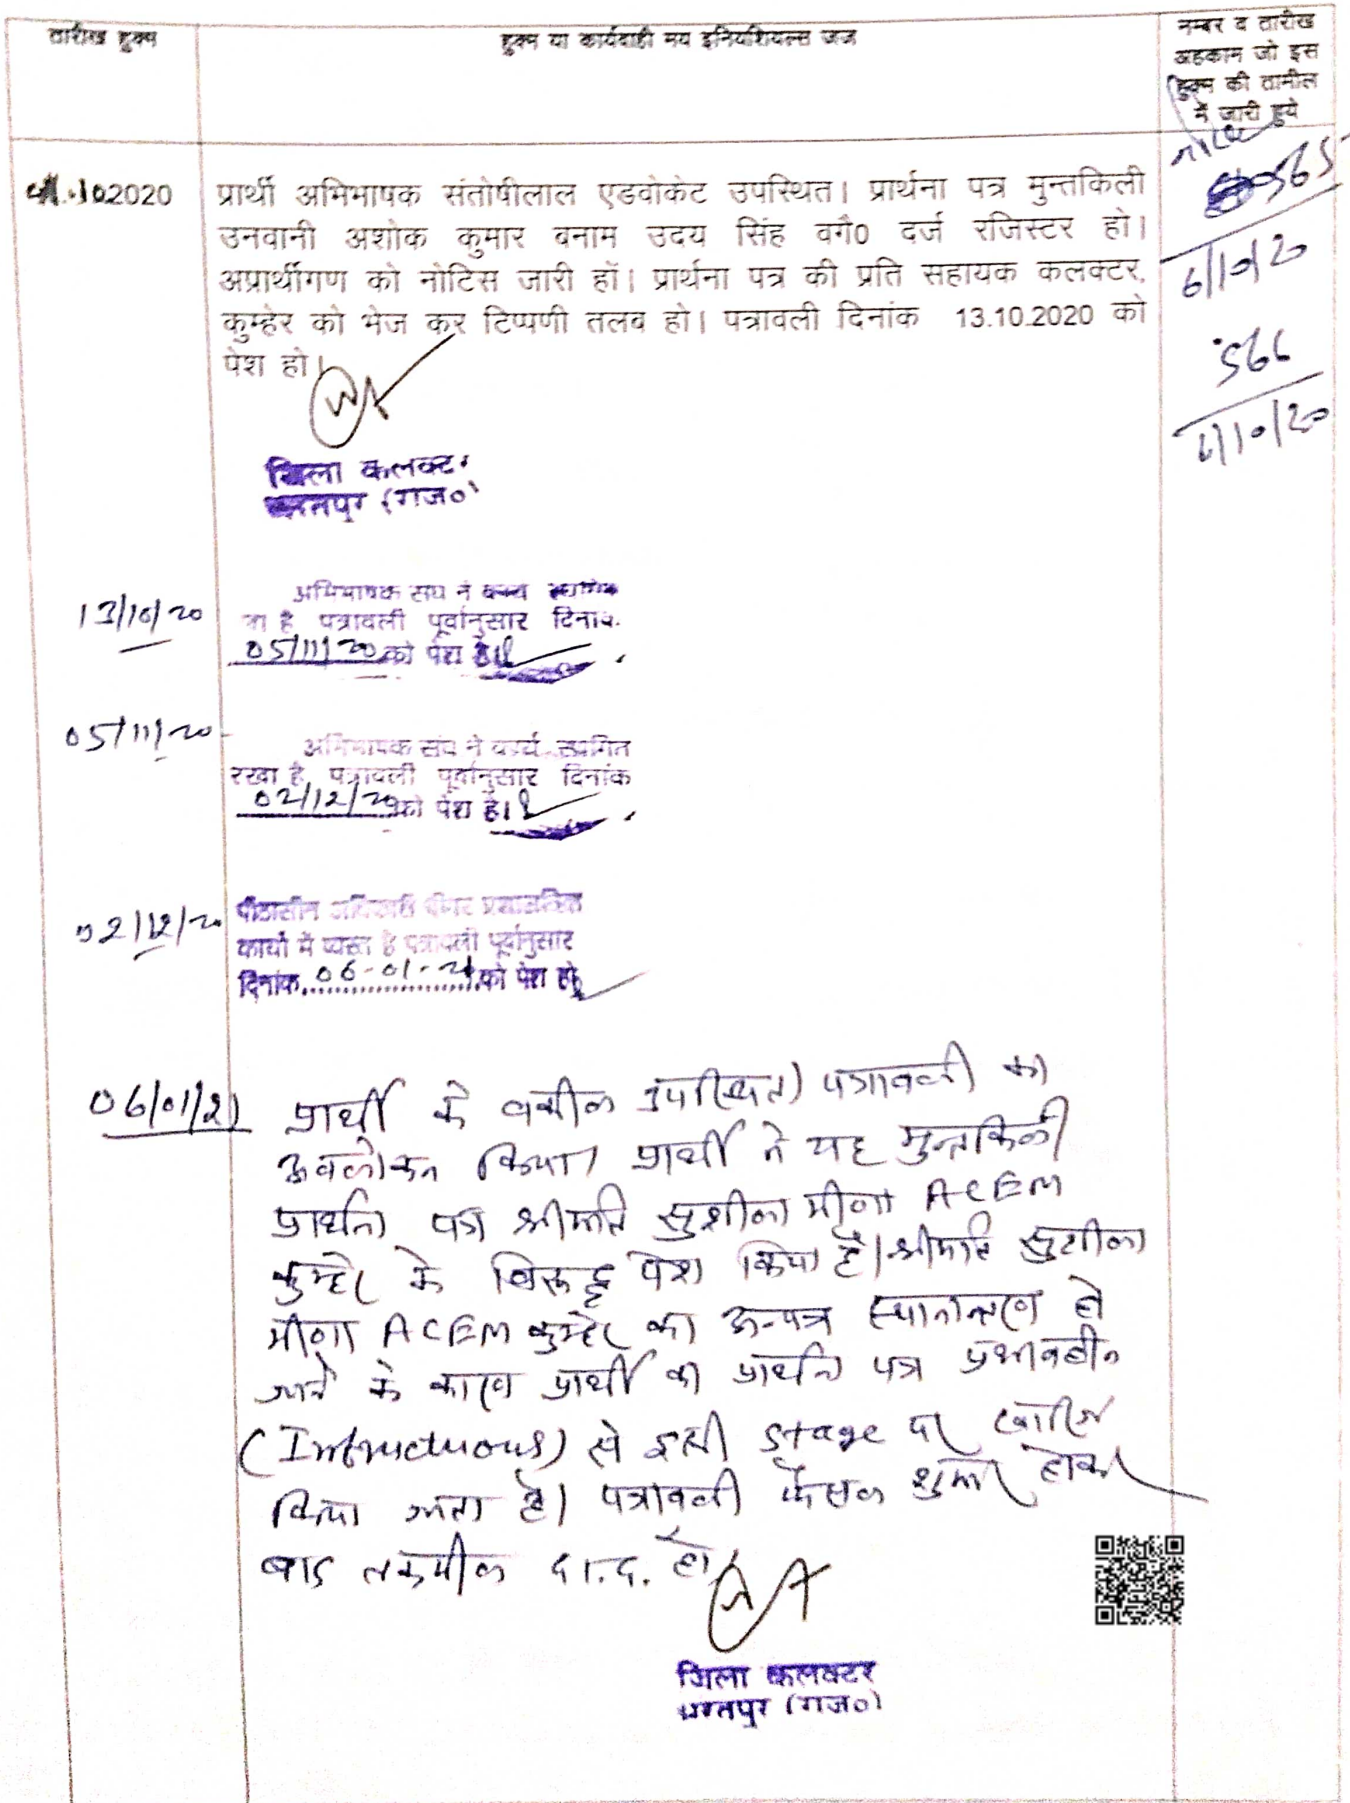 तारीख हुक्म
हुक्म या कार्यवाही मय इनिशियल्स जज
नम्बर व तारीख
अहकाम जो इस
हुक्म की तामील
में जारी हुये
.10.2020
प्रार्थी अभिभाषक संतोषीलाल एडवोकेट उपस्थित। प्रार्थना पत्र मुन्तकिली
उनवानी अशोक कुमार बनाम उदय सिंह वगै0 दर्ज रजिस्टर हो।
अप्रार्थीगण को नोटिस जारी हों। प्रार्थना पत्र की प्रति सहायक कलक्टर,
कुम्हेर को भेज कर टिप्पणी तलब हो। पत्रावली दिनांक 13.10.2020 को
पेश हो।
565
6/10/20
566
6/10/20
जिला कलक्टर
भरतपुर (राज०)
13/10/20
अभिभाषक संघ ने कार्य स्थगित
पत्रावली पूर्वानुसार दिनांक
05/11/20 को पेश हो।
05/11/20
अभिभाषक संघ ने कार्य स्थगित
रखा है, पत्रावली पूर्वानुसार दिनांक
02/12/20 को पेश हो।
02/12/20
पीठासीन अधिकारी प्रशासनिक
कार्यों में व्यस्त है पत्रावली पूर्वानुसार
दिनांक 06-01-21 को पेश हो
06/01/21
प्रार्थी के वकील उपस्थित। पत्रावली का
अवलोकन किया। प्रार्थी ने यह मुन्तकिली
प्रार्थना पत्र श्रीमति सुशीला मीणा ACEM
कुम्हेर के विरूद्ध पेश किया है। श्रीमति सुशीला
मीणा ACEM कुम्हेर का अन्यत्र स्थानान्तरण हो
जाने के कारण प्रार्थी का प्रार्थना पत्र प्रभावहीन
(Infructuous) से इसी stage पर खारिज
किया जाता है। पत्रावली फैसल शुमार होकर
बाद तकमील दा.द. हो।
जिला कलक्टर
भरतपुर (राज०)